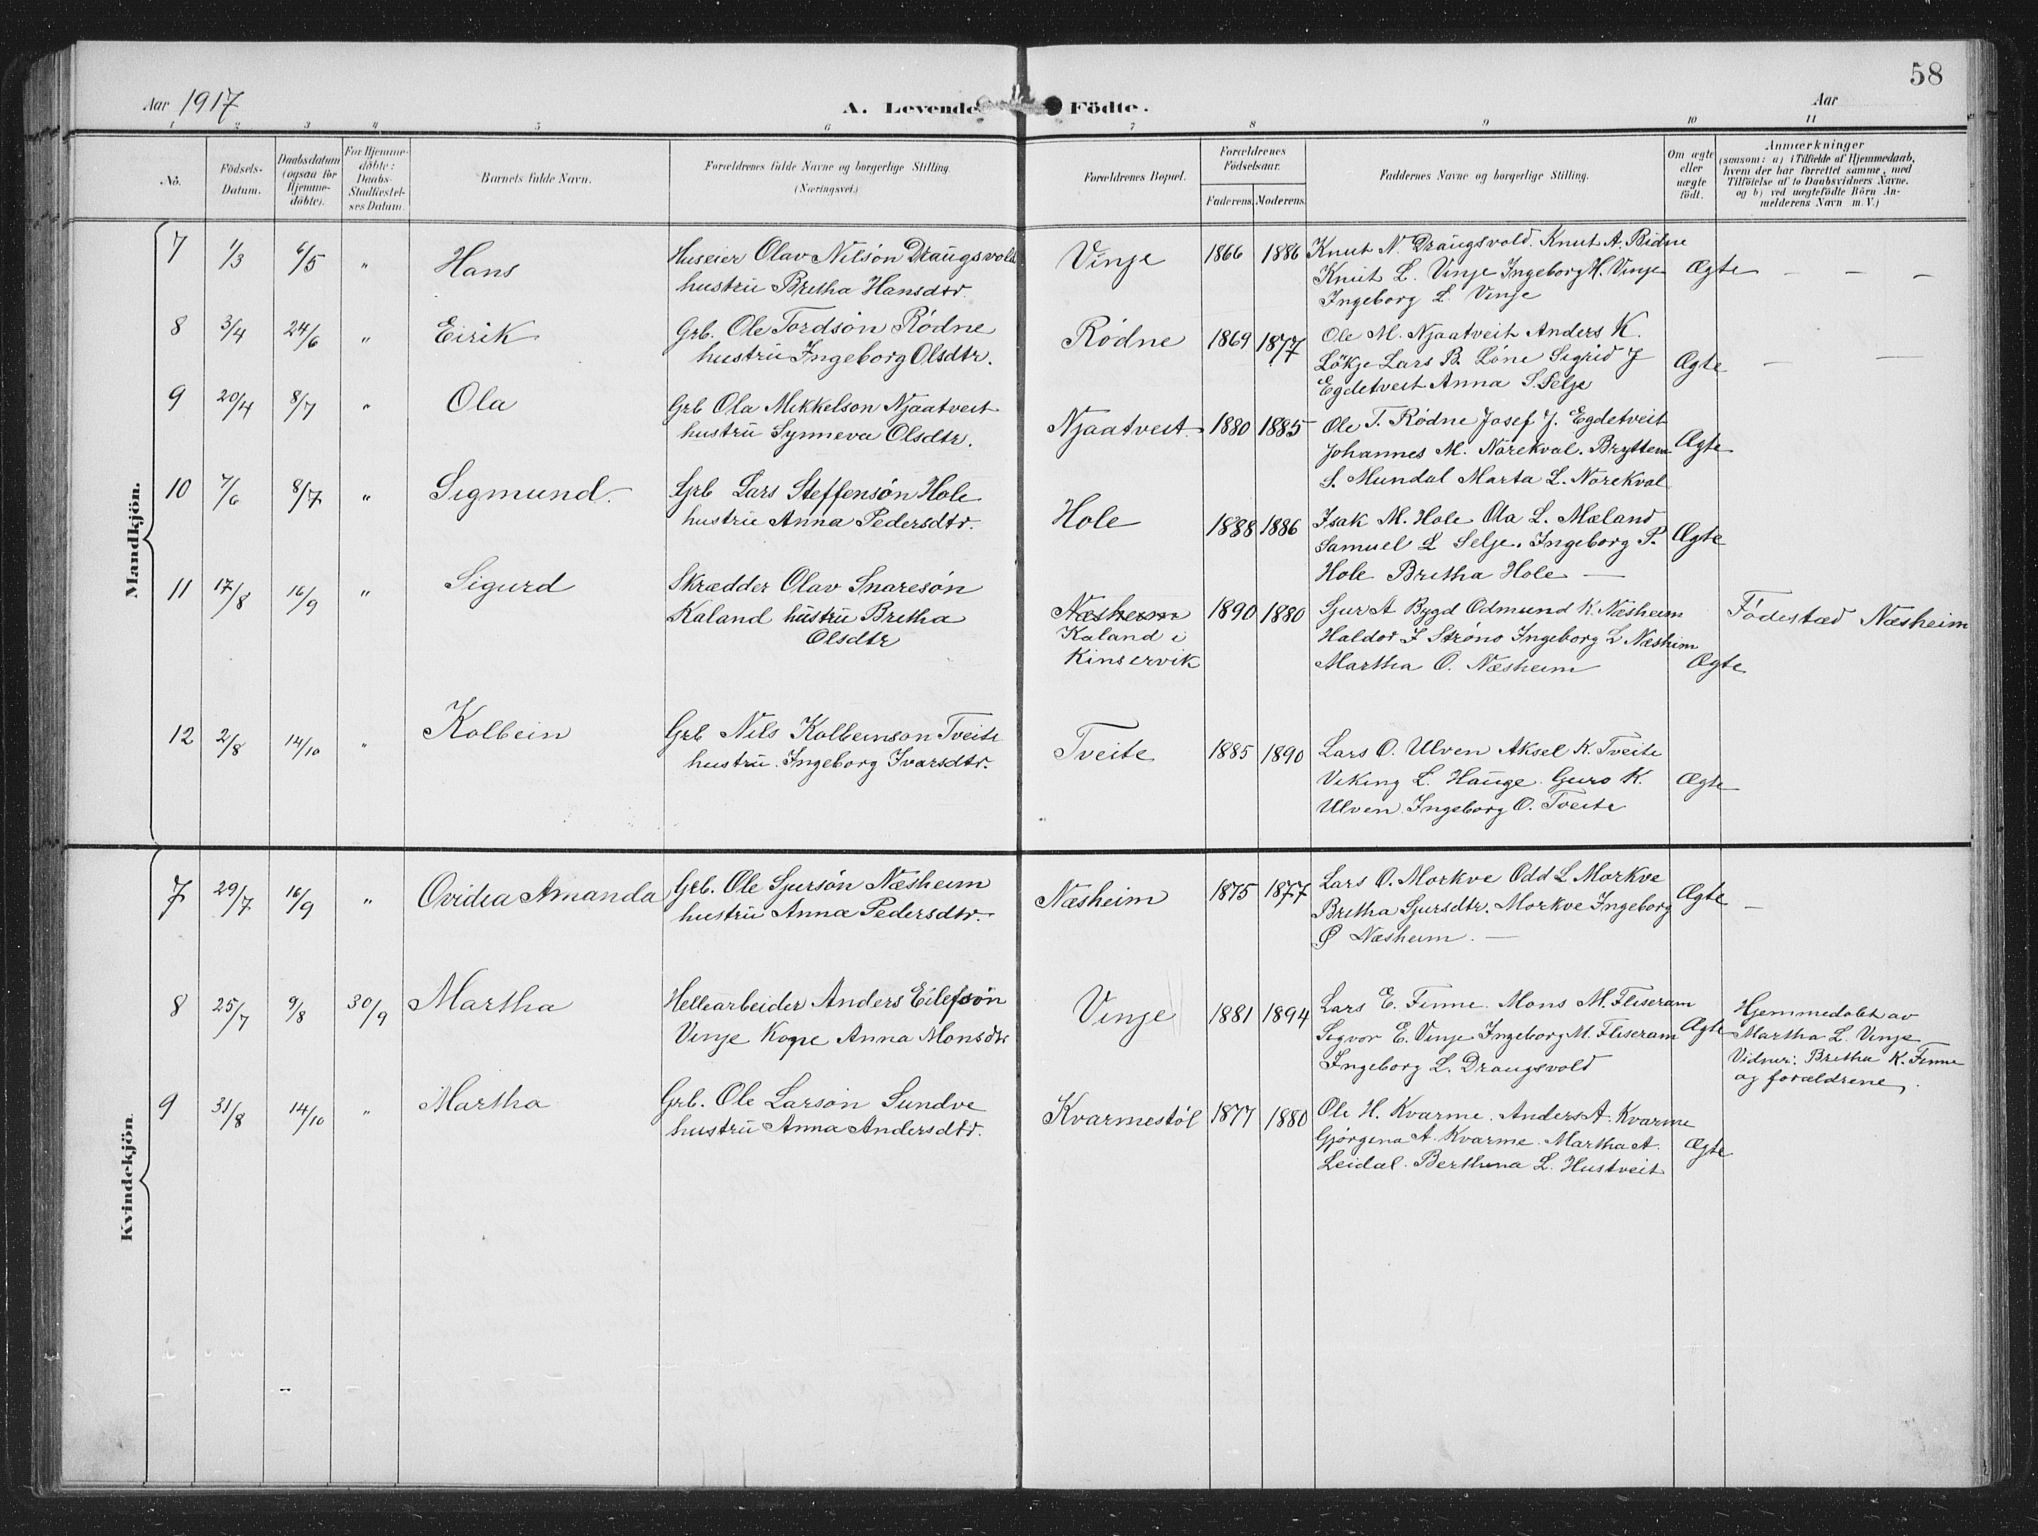 58
Aar 1917
A. Levende Födte.
Aar
1 2 3 4 5 6 7 8 9 10 11
No.
Födsels-
Datum.
Daabsdatum
(ogsaa for
Hjemme-
döbte).
For Hjemme-
döbte:
Daabs-
Stadfæstel-
ses Datum.
Barnets fulde Navn.
Forældrenes fulde Navne og borgerlige Stilling
(Næringsvei.)
Forældrenes Bopæl.
Forældrenes
Födselsaar.
Faderens. Moderens.
Faddernes Navne og borgerlige Stilling.
Om ægte
eller
uægte
födt.
Anmærkninger
(saasom: a) i Tilfælde af Hjemmedaab,
hvem der har forrettet samme, med
Tilföielse af to Daabsvidners Navne.
og b) ved uægtefödte Börn An-
melderens Navn m. V.)
Mandkjön.
7 1/3 6/5 " Hans
Huseier Olav Nilsön Draugsvold
hustru Bretha Hansdtr.
Vinje 1866 1886
Knut N. Draugsvold. Knut A. Ridne
Knut L. Vinje Ingeborg H. Vinje
Ingeborg L. Vinje
Ægte — — —
8 3/4 24/6 " Eirik
Grb. Ole Tordsön Rödne
hustru Ingeborg Olsdtr.
Rödne 1869 1877
Ole M. Njaatveit Anders K.
Lökje Lars B. Löne Sigrid J
Egdetveit Anna S. Selje
Ægte —
9 20/4 8/7 " Ola
Grb Ola Mikkelson Njaatveit
hustru Synneva Olsdtr.
Njaatveit. 1880 1885
Ole T. Rödne Josef J. Egdetveit
Johannes M. Norekval. Bryttem
S. Mundal Marta L. Norekval
Ægte
10 7/6 8/7 " Sigmund.
Grb Lars Steffensön Hole
hustru Anna Pedersdtr.
Hole 1888 1886
Isak M. Hole Ola L. Mæland
Samuel L Selje. Ingeborg P.
Hole Bretha Hole —
Ægte
11 17/8 16/9 " Sigurd
Skrædder Olav Snaresön
Kaland hustru Bretha
Olsdtr
Næsheim
Kaland i
Kinservik
1890 1880
Sjur A Bygd Odmund K. Næsheim
Haldor J Ströno Ingeborg L Næsheim
Martha O. Næsheim
Ægte
Födestad Næsheim
12 2/8 14/10 " Kolbein
Grb Nils Kolbeinson Tveite
hustru. Ingeborg Ivarsdtr.
Tveite 1885 1890
Lars O. Ulven Aksel K. Tveite
Viking L. Hauge Guro K.
Ulven. Ingeborg O. Tveite
Ægte
Kvindekjön
7 29/7 16/9 " Ovidia Amanda
Grb. Ole Sjursön Næsheim
hustru Anna Pedersdtr.
Næsheim 1875 1877
Lars O. Morkve Odd L Morkve
Bretha Sjursdtr. Morkve Ingeborg
Ö Næsheim. —
Ægte —
8 25/7 9/8 30/9 Martha
Hellearbeider Anders Eilefsön
Vinje Kone Anna Monsdtr
Vinje 1881 1894
Lars E. Finne. Mons M. Fliseram
Sigvor E. Vinje Ingeborg M. Fliseram
Ingeborg L. Draugsvold
Ægte
Hjemmedöbt av
Martha L. Vinje
Vidner: Bretha K. Finne
og forældrene.
9 31/8 14/10 " Martha
Grb. Ole Larson Sundve
hustru Anna Andersdtr.
Kvarmestöl 1877 1880
Ole H. Kvarme. Anders A. Kvarme
Gjörgena A. Kvarme. Martha A.
Leidal. Berthina L. Hustveit
Ægte